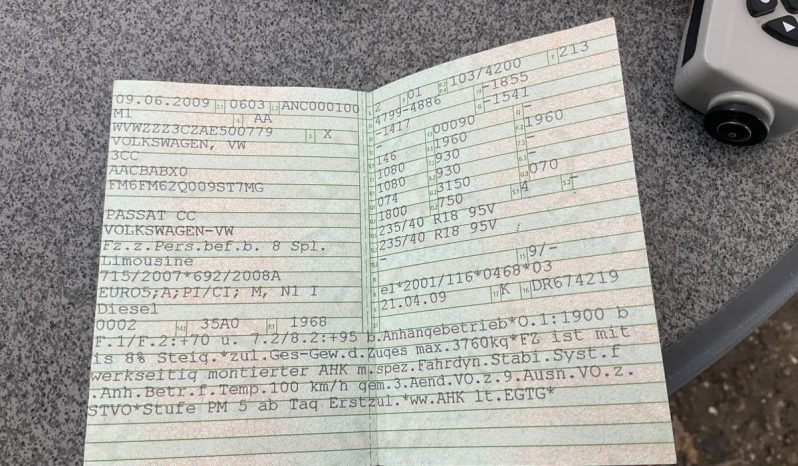 09.06.2009 0603 ANC000100
M1 AA
WVWZZZ3CZAE500779 X
VOLKSWAGEN, VW
3CC
AACBABX0
FM6FM62Q009ST7MG
PASSAT CC
VOLKSWAGEN-VW
Fz.z.Pers.bef.b. 8 Spl.
Limousine
715/2007*692/2008A
EURO5;A;PI/CI; M, N1 I
Diesel
0002 35A0 1968
2 01 103/4200 213
4799-4886 -1855
-1417 -1541
- 00090 -
146 1960 1960
1080 930 -
1080 930 -
074 3150 070
1800 750 4 -
235/40 R18 95V
235/40 R18 95V
-
9/-
e1*2001/116*0468*03
21.04.09 K DR674219
F.1/F.2:+70 u. 7.2/8.2:+95 b.Anhängebetrieb*O.1:1900 b
is 8% Steig.*zul.Ges-Gew.d.Zuges max.3760kg*FZ ist mit
werkseitig montierter AHK m.spez.Fahrdyn.Stabi.Syst.f
.Anh.Betr.f.Temp.100 km/h gem.3.Aend.VO.z.9.Ausn.VO.z.
STVO*Stufe PM 5 ab Tag Erstzul.*ww.AHK lt.EGTG*